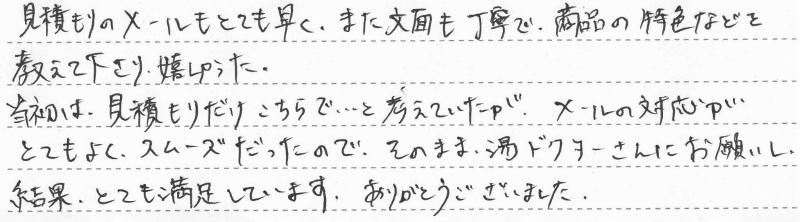 見積もりのメールもとても早く、また文面も丁寧で、商品の特色などを
教えて下さり、嬉しかった。
当初は、見積もりだけこちらで…と考えていたが、メールの対応が
とてもよく、スムーズだったので、そのまま、湯ドクターさんにお願いし、
結果、とても満足しています。ありがとうございました。